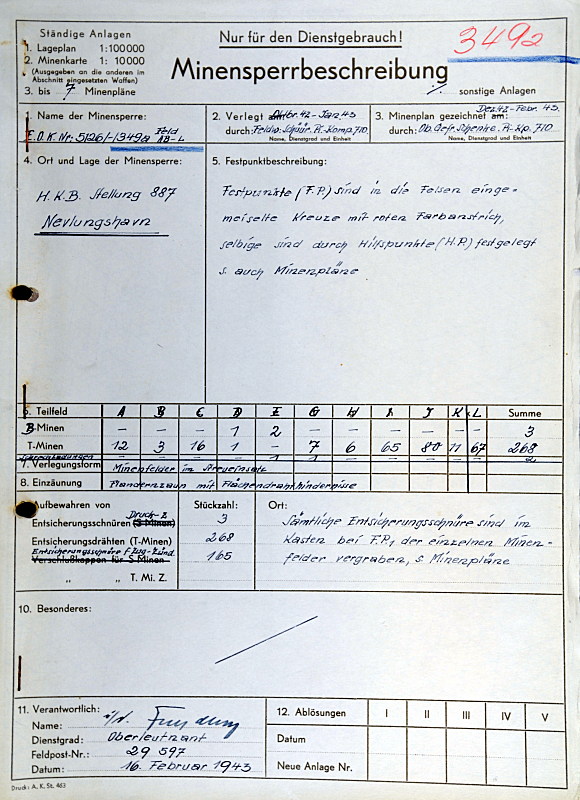 Ständige Anlagen
1. Lageplan 1:100000
2. Minenkarte 1: 10000
(Ausgegeben an die anderen im
Abschnitt eingesetzten Waffen)
3. bis 7 Minenpläne
Nur für den Dienstgebrauch!
Minensperrbeschreibung
349a
·/. sonstige Anlagen
1. Name der Minensperre:
F.O.K. Nr. 5126/-1349a Feld
AB-L
2. Verlegt am: Oktbr. 42 - Jan. 43
durch: Feldw. Schnür. Pi-Komp. 710
Name, Dienstgrad und Einheit
3. Minenplan gezeichnet am: Dez. 42-Febr. 43.
durch: Ob. Gefr. Schenke. Pi-Kp. 710
Name, Dienstgrad und Einheit
4. Ort und Lage der Minensperre:
H.K.B. Stellung 887
Nevlungshavn
5. Festpunktbeschreibung:
Festpunkte (F.P.) sind in die Felsen einge=
meiselte Kreuze mit roten Farbanstrich,
selbige sind durch Hilfspunkte (H.P.) festgelegt
s. auch Minenpläne
6. Teilfeld A B C D E G H I J K L Summe
B-Minen — — — 1 2 — — — — — — 3
T-Minen 12 3 16 1 — 7 6 65 80 11 67 268
7. Verlegungsform Minenfelder im Streueinsatz
8. Einzäunung Flandernzaun mit Flächendrahthindernisse
Aufbewahren von Stückzahl: Ort:
Druck-Z.
Entsicherungsschnüren (S-Minen) 3
Entsicherungsdrähten (T-Minen) 268
Entsicherungsschnüre f. Zug-Zünd.
Verschlußkappen für S-Minen 165
„ „ T. Mi. Z.
Sämtliche Entsicherungsschnüre sind im
Kasten bei F.P., der einzelnen Minen-
felder vergraben, s. Minenpläne
10. Besonderes:
11. Verantwortlich:
Name:
Dienstgrad: Oberleutnant
Feldpost-Nr.: 29 597
Datum: 16. Februar 1943
12. Ablösungen I II III IV V
Datum
Neue Anlage Nr.
Druck: A. K. St. 463